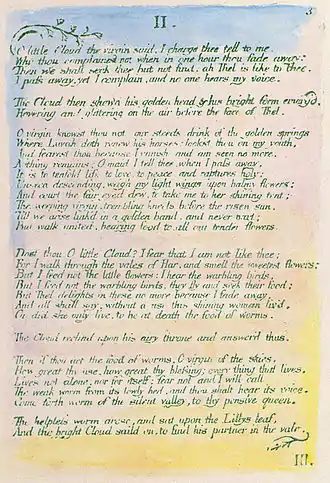 3
II.
O little Cloud the virgin said, I charge thee tell to me
Why thou complainest not when in one hour thou fade away:
Then we shall seek thee but not find: ah Thel is like to Thee.
I pass away, yet I complain, and no one hears my voice.
The Cloud then shew'd his golden head & his bright form emerg'd,
Hovering and glittering on the air before the face of Thel.
O virgin know'st thou not our steeds drink of the golden springs
Where Luvah doth renew his horses: look'st thou on my youth,
And fearest thou because I vanish and am seen no more,
Nothing remains; O maid I tell thee, when I pass away,
It is to tenfold life, to love, to peace, and raptures holy:
Unseen descending, weigh my light wings upon balmy flowers:
And court the fair eyed dew, to take me to her shining tent;
The weeping virgin, trembling kneels before the risen sun,
Till we arise link'd in a golden band, and never part;
But walk united, bearing food to all our tender flowers
Dost thou O little Cloud? I fear that I am not like thee;
For I walk through the vales of Har, and smell the sweetest flowers;
But I feed not the little flowers: I hear the warbling birds,
But I feed not the warbling birds, they fly and seek their food;
But Thel delights in these no more because I fade away,
And all shall say, without a use this shining woman liv'd,
Or did she only live, to be at death the food of worms.
The Cloud reclind upon his airy throne and answer'd thus.
Then if thou art the food of worms, O virgin of the skies,
How great thy use, how great thy blessing; every thing that lives,
Lives not alone, nor for itself: fear not and I will call
The weak worm from its lowly bed, and thou shalt hear its voice.
Come forth worm of the silent valley, to thy pensive queen.
The helpless worm arose, and sat upon the Lillys leaf,
And the bright Cloud saild on, to find his partner in the vale
III.